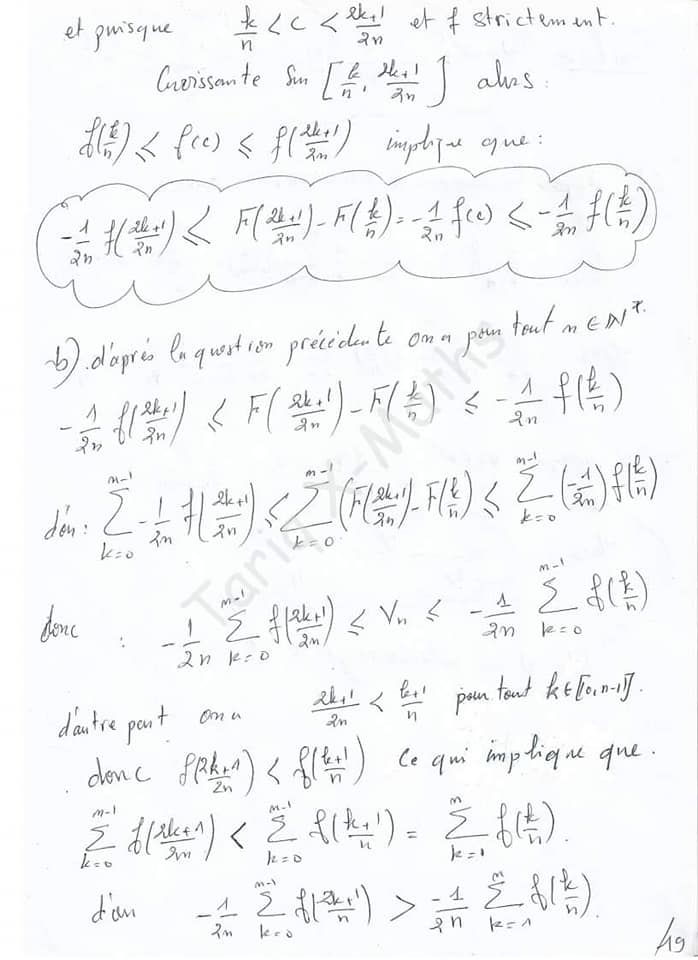 et puisque k/n < c < 2k+1/2n et f strictement.
Croissante sur [k/n, 2k+1/2n] alors :
f(k/n) ⩽ f(c) ⩽ f(2k+1/2n) implique que :
-1/2n f(2k+1/2n) ⩽ F(2k+1/2n) - F(k/n) = -1/2n f(c) ⩽ -1/2n f(k/n)
b). d'après la question précédente on a pour tout n ∈ ℕ*.
-1/2n f(2k+1/2n) ⩽ F(2k+1/2n) - F(k/n) ⩽ -1/2n f(k/n)
d'où : ∑_{k=0}^{n-1} -1/2n f(2k+1/2n) ⩽ ∑_{k=0}^{n-1} (F(2k+1/2n) - F(k/n) ⩽ ∑_{k=0}^{n-1} (-1/2n) f(k/n)
donc : -1/2n ∑_{k=0}^{n-1} f(2k+1/2n) ⩽ Vn ⩽ -1/2n ∑_{k=0}^{n-1} f(k/n)
d'autre part on a 2k+1/2n < k+1/n pour tout k∈[[0,n-1]].
. donc f(2k+1/2n) < f(k+1/n) Ce qui implique que.
∑_{k=0}^{n-1} f(2k+1/2n) < ∑_{k=0}^{n-1} f(k+1/n) = ∑_{k=1}^{n} f(k/n).
d'où -1/2n ∑_{k=0}^{n-1} f(2k+1/n) > -1/2n ∑_{k=1}^{n} f(k/n).
/19
Tariq X-Maths